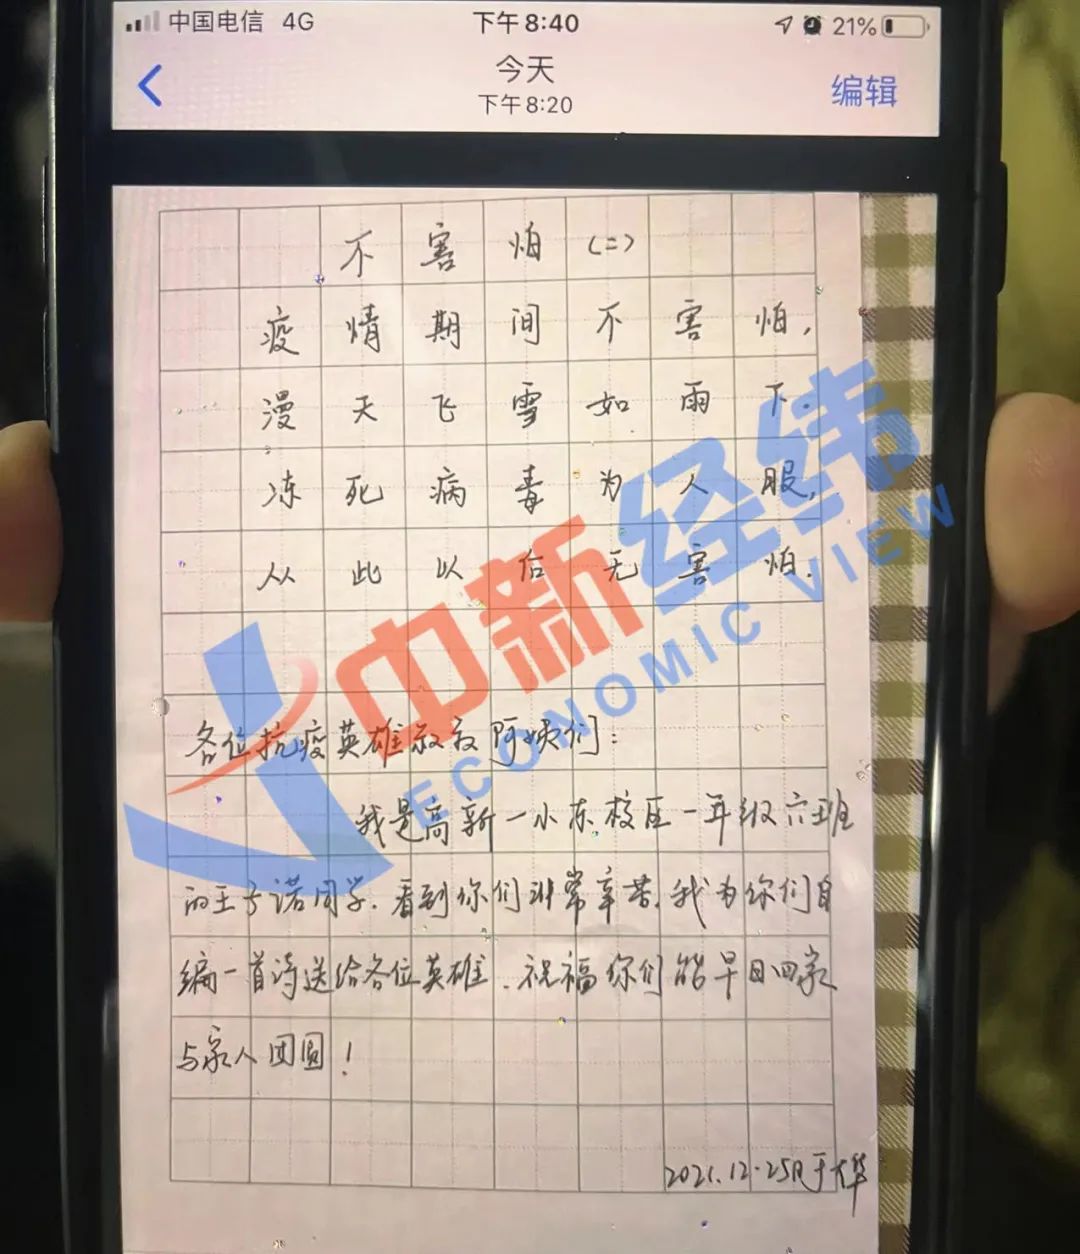 中国电信 4G 下午8:40 21%
今天
下午8:20
编辑
不害怕(二)
疫情期间不害怕,
漫天飞雪如雨下.
冻死病毒为人服,
从此以后无害怕.
各位抗疫英雄叔叔阿姨们:
我是高新一小东校区一年级六班
的王子诺同学.看到你们非常辛苦,我为你们自
编一首诗送给各位英雄.祝福你们能早日回家
与家人团圆!
2021.12.25日于
中新经纬
ECONOMIC VIEW